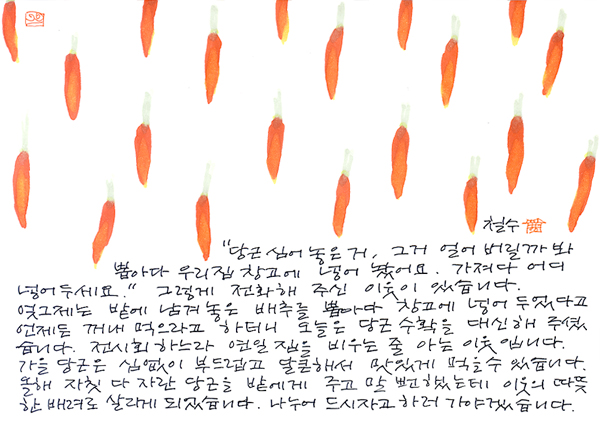 철수
"당근 심어 놓은 거, 그거 얼어 버릴까 봐
뽑아다 우리집 창고에 넣어 놨어요. 가져다 어디
넣어 두세요." 그렇게 전화해 주신 이웃이 있습니다.
엊그제는 밭에 남겨 놓은 배추를 뽑아다 창고에 넣어 두었다고
언제든 꺼내 먹으라고 하더니 오늘은 당근 수확을 대신해 주셨
습니다. 전시회 하느라 연일 집을 비우는 줄 아는 이웃입니다.
가을 당근은 심 없이 부드럽고 달콤해서 맛있게 먹을 수 있습니다.
올해 자칫 다 자란 당근을 밭에게 주고 말 뻔 했는데 이웃의 따뜻
한 배려로 살리게 되었습니다. 나누어 드시자고 하러 가야겠습니다.